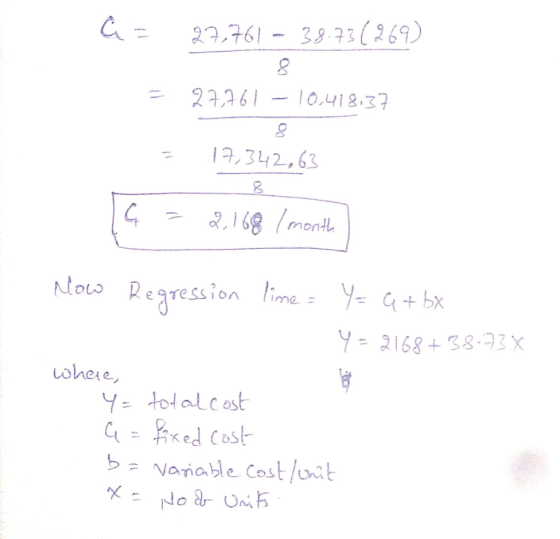 a = 27,761 - 38.73(269)
8
= 27,761 - 10,418.37
8
= 17,342.63
8
a = 2,168 /month
Now Regression line = Y = a + bx
Y = 2168 + 38.73x
where,
Y = total cost
a = fixed cost
b = variable cost/unit
x = No of Units